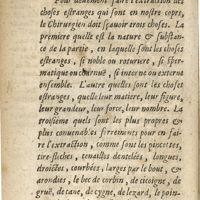 Pour deuëment faire l'extraction des
choses estranges qui sont en nostre corps,
le Chirurgien doit sçauoir trois choses. La
premiere quelle est la nature & substan-
ce de la partie, en laquelle sont les choses
estranges, si noble ou roturiere, si sper-
matique ou charnuë, si interne ou externe
ensemble. L'autre quelles sont les choses
estranges, quelle leur matiere, leur figure,
leur grandeur, leur force, leur nombre. La
troisiéme quels sont les plus propres &
plus conuenables ferrements pour en fai-
re l'extraction, comme sont les pincettes,
tire-fleches, tenailles dentelées, longues,
droictes, courbées, larges par le bout, &
arondies, le bec de corbin, de cicoigne, de
gruë, de cane, de cygne, de lezard, le poin-